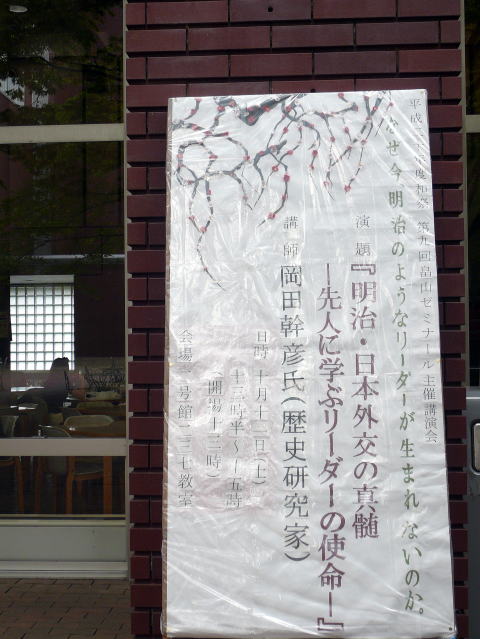 平成二十年度和祭 第九回畠山ゼミナール主催講演会
なぜ今明治のようなリーダーが生まれないのか。
演題『明治・日本外交の真髄
―先人に学ぶリーダーの使命―』
講師 岡田幹彦氏(歴史研究家)
日時 十月十二日(土)
十三時半～十五時
(開場十三時)
会場 号館二三七教室